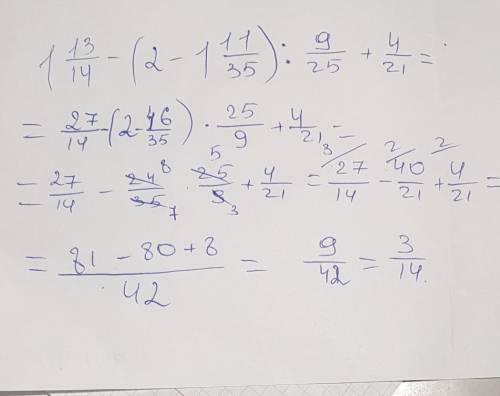 1 13/14 - (2 - 1 11/35) : 9/25 + 4/21 =
= 27/14 - (2 - 46/35) · 25/9 + 4/21 =
= 27/14 - 24⁸/35₇ · ⁵25/9₃ + 4/21 = ³/27/14 - ²/40/21 + ²/4/21 =
= 81 - 80 + 8/42 = 9/42 = 3/14.